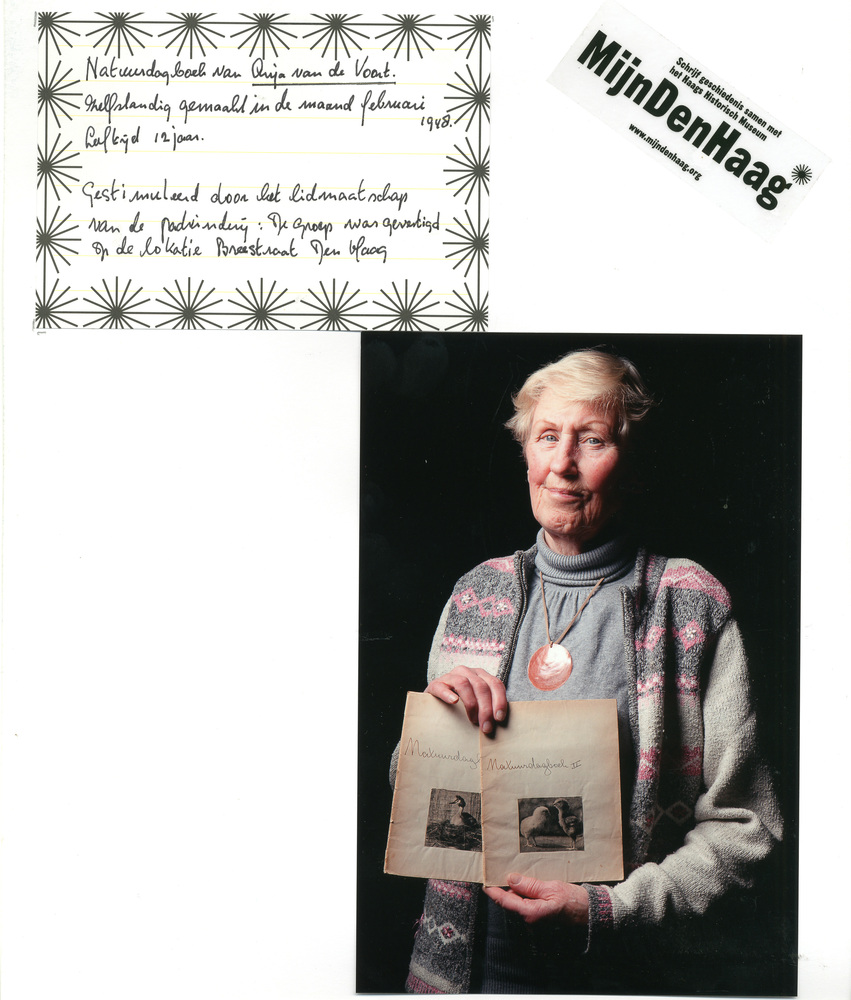 Natuurdagboek van Anja van de Voort.
Zelfstandig gemaakt in de maand februari
1948.
Leeftijd 12 jaar.
Gestimuleerd door het lidmaatschap
van de padvinderij: De groep was gevestigd
op de lokatie Breestraat Den Haag
Schrijf geschiedenis samen met
het Haags Historisch Museum
MijnDenHaag
www.mijndenhaag.org
Natuurdagb
Natuurdagboek II